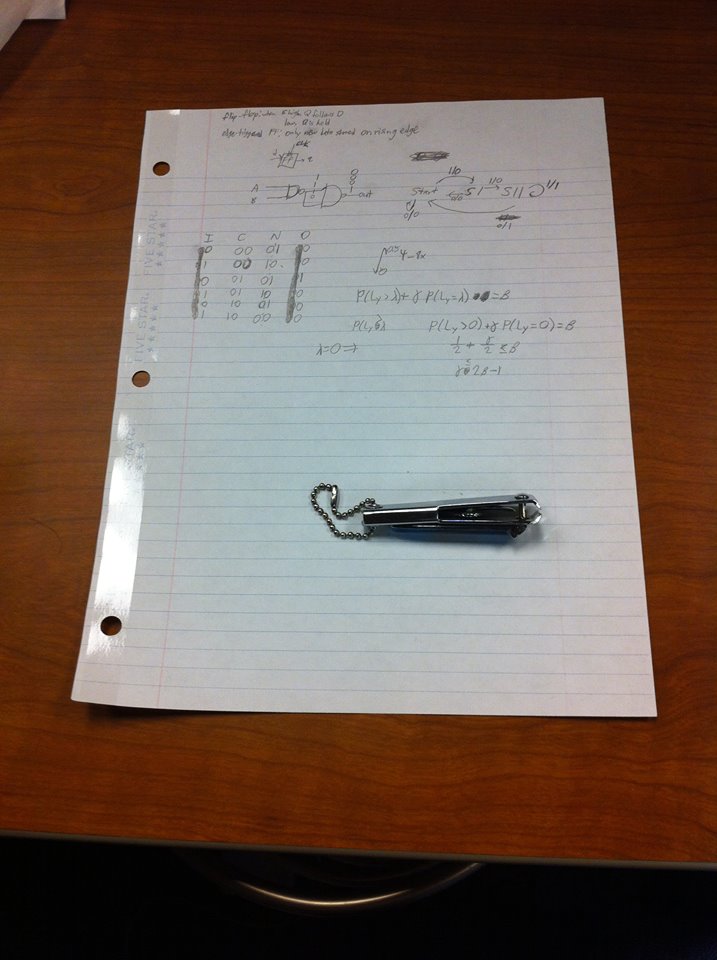 flip-flop: when E high Q follows D
low Q is held
edge-triggered FF: only new data stored on rising edge
clk
FF
A
B
1
0
1
0
0
0
out
1/0
Start
0/0
S1
1/0
S11
1/1
0/0
0/1
I C N O
0 00 01 0
1 00 10 0
0 01 01 1
1 01 10 0
0 10 01 0
1 10 00 0
∫ 0 0.5 4-8x
P(Ly>λ)+γ P(Ly=λ) =B
P(Ly λ
P(Ly>0)+γ P(Ly=0)=B
λ=0⇒
1/2 + γ/2 ≤ B
γ 2B-1
FIVE STAR.
FIVE STAR.
STAR.